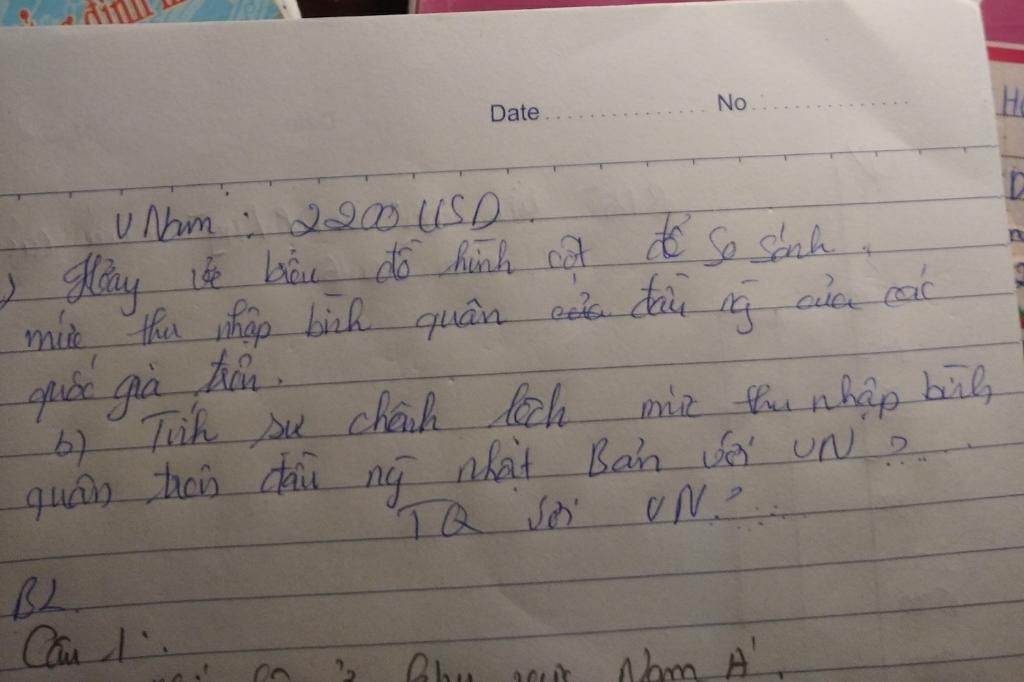 định
Date No
V Nam : 2200 USD.
) Hãy vẽ biểu đồ hình cột để so sánh
mức thu nhập bình quân của đầu ng̃ của các
quốc gia trên.
b) Tính sự chênh lệch mức thu nhập bình
quân trên đầu ng̃ nhật Bản với VN ?...
TQ với VN ?...
BL
Câu 1 :
Nam Á